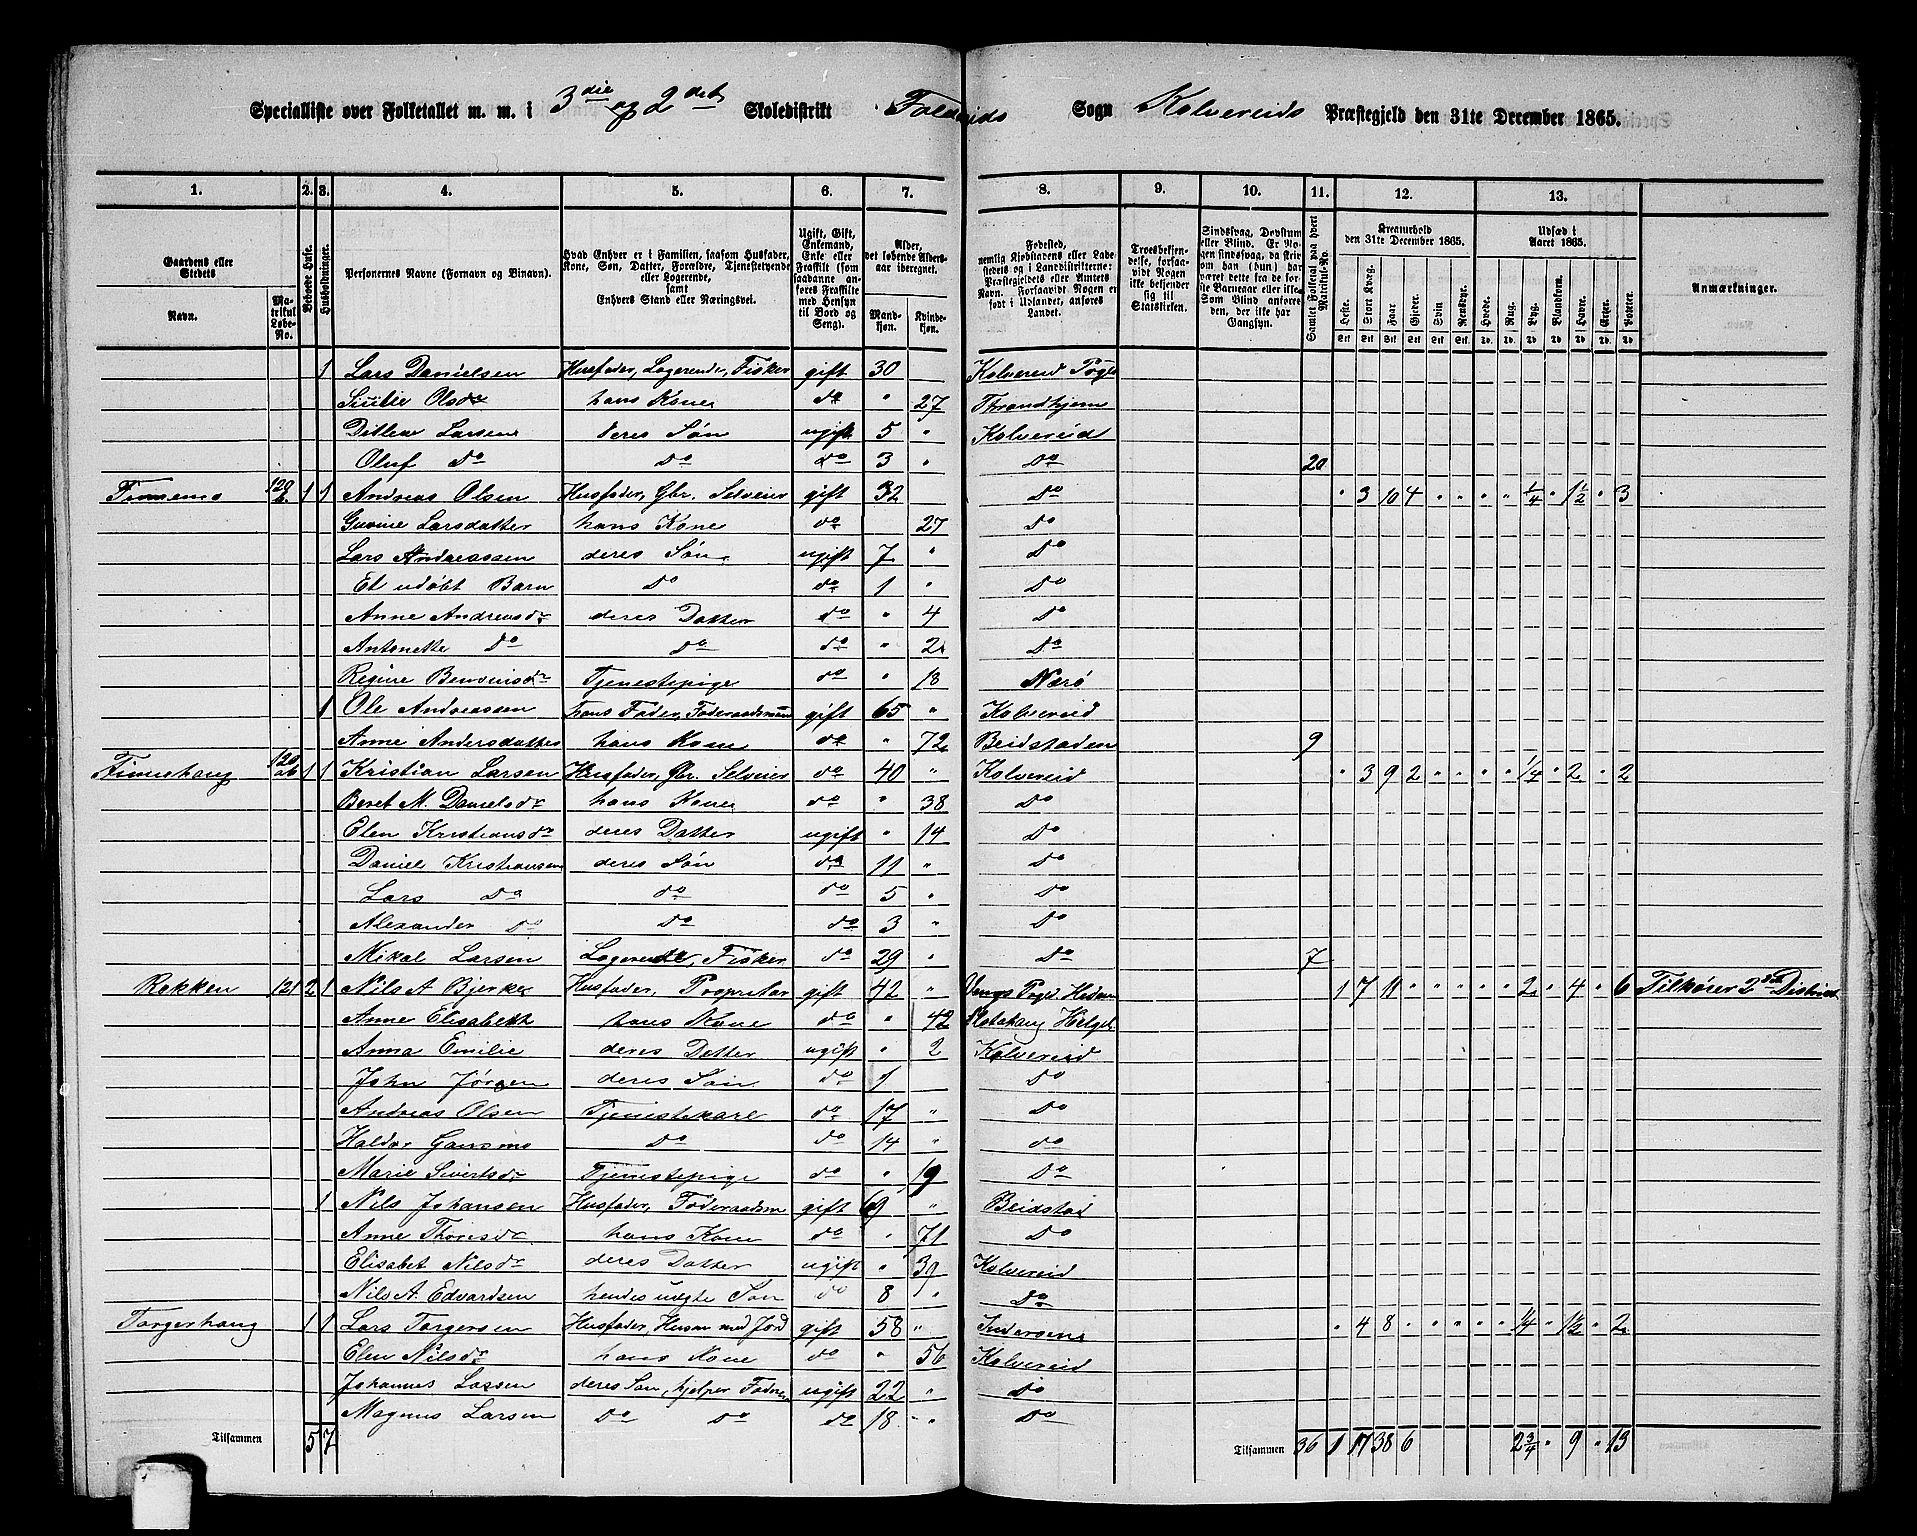 Specialliste over Folketallet m. m. i 3die og 2det Skoledistrikt Foldereids Sogn Kolvereids Præstegjeld den 31te December 1865.
1. 2. 3. 4. 5. 6. 7. 8. 9. 10. 11. 12. 13.
Gaardens eller Stedets Navn. Matrikul Løbe-No. Beboede Huse. Husholdninger. Personernes Navne (Fornavn og Binavn). Hvad Enhver er i Familien, saasom Husfader, Kone, Søn, Datter, Forældre, Tjenestetyende eller Logerende, samt Enhvers Stand eller Næringsvei. Ugift, Gift, Enkemand, Enke eller Fraskilt (saavel som saadanne anføres Fraskilte med Hensyn til Bord og Seng). Alder, det løbende Aldersaar iberegnet. Mandkjøn. Kvindekjøn.
Fødested, nemlig Kjøbstadens eller Ladestedets og i Landdistrikterne: Præstegjeldets eller Amtets Navn. Forsaavidt Nogen er født i Udlandet, anføres Landet. Troesbekjendelse, forsaavidt Nogen ikke bekjender sig til Statskirken. Samlet Folketal paa hvert Matrikul-No. Kreaturhold den 31te December 1865. Heste. Stort Kvæg. Faar. Gjeder. Svin. Rensdyr. Udsæd i Aaret 1865. Hvede. Rug. Byg. Blandkorn. Havre. Erter. Poteter. Anmærkninger.
1 Lars Danielsen Husfader, Logerende, Fisker gift 30 Kolvereid Pgld
Olsdr hans Kone do " 27 Throndhjem
Ditlew Larsen deres Søn ugift 5 " Kolvereid
Oluf do do do 3 " Do 20
Finnemo 120 b 1 1 Andreas Olsen Husfader, Gbr. Selveier gift 32 Do " 3 10 4 " " " " 1/4 " 1 1/2 " 3
Guvine Larsdatter hans Kone do 27 Do
Lars Andreassen deres Søn ugift 7 " Do
Et udøbt Barn Do do 1 " Do
Anne Andreasdr deres Datter do " 4 Do
Antonette Do Do do " 2 Do
Regine Bensvendsdr Tjenestepige do " 18 Nærø
1 Ole Andreassen hans Fader, Føderaadsmand gift 65 " Kolvereid
Anne Andersdatter hans Kone do " 72 Beidstaden 9
Finnehaug 120 ab 1 1 Kristian Larsen Husfader, Gbr. Selveier do 40 " Kolvereid " 3 9 2 " " " " 1/4 " 2 " 2
Beret M. Danielsdr hans Kone " 38 Do
Elen Kristiansdr deres Datter ugift " 14 Do
Daniel Kristiansen deres Søn do 11 " Do
Lars Do Do do 5 " Do
Alexander Do Do do 3 " Do
Mikal Larsen Logerende, Fisker do 29 " Do 7
Rokken 121 2 1 Nils A Bjerke Husfader, Proprietær gift 42 " Vangs Pgld Hedem 1 7 11 " " " " " 2 " 4 " 6 Tilhører 2det District
Anne Elisabeth hans Kone do " 42 Helgel
Anna Emilie deres Datter ugift " 2 Kolvereid
John Jørgen deres Søn do 1 Do
Andreas Olsen Tjenestekarl do 17 " Do
Haldor Gansmo Do do 14 " do
Marie Sivertsdr Tjenestepige do " 19 Do
1 Nils Johansen Husfader, Føderaadsm gift 69 " Beidstad
Anne Thoresdr hans Kone do " 71 Do
Elisabet Nilsdr deres Datter ugift " 39 Kolvereid
Nils A. Edvardsen hendes uægte Søn do 8 " Do
Torgerhaug 1 1 Lars Torgersen Husfader, Husm med Jord gift 58 " Inderøen " 4 8 " " " " " 1/4 " 1 1/2 " 2
Elen Nilsdr hans Kone do " 56 Kolvereid
Johannes Larsen deres Søn, hjelper Fader ugift 22 " Do
Magnus Larsen Do Do do 18 " Do
Tilsammen 5 7 Tilsammen 36 1 17 38 6 2 3/4 " 9 " 13